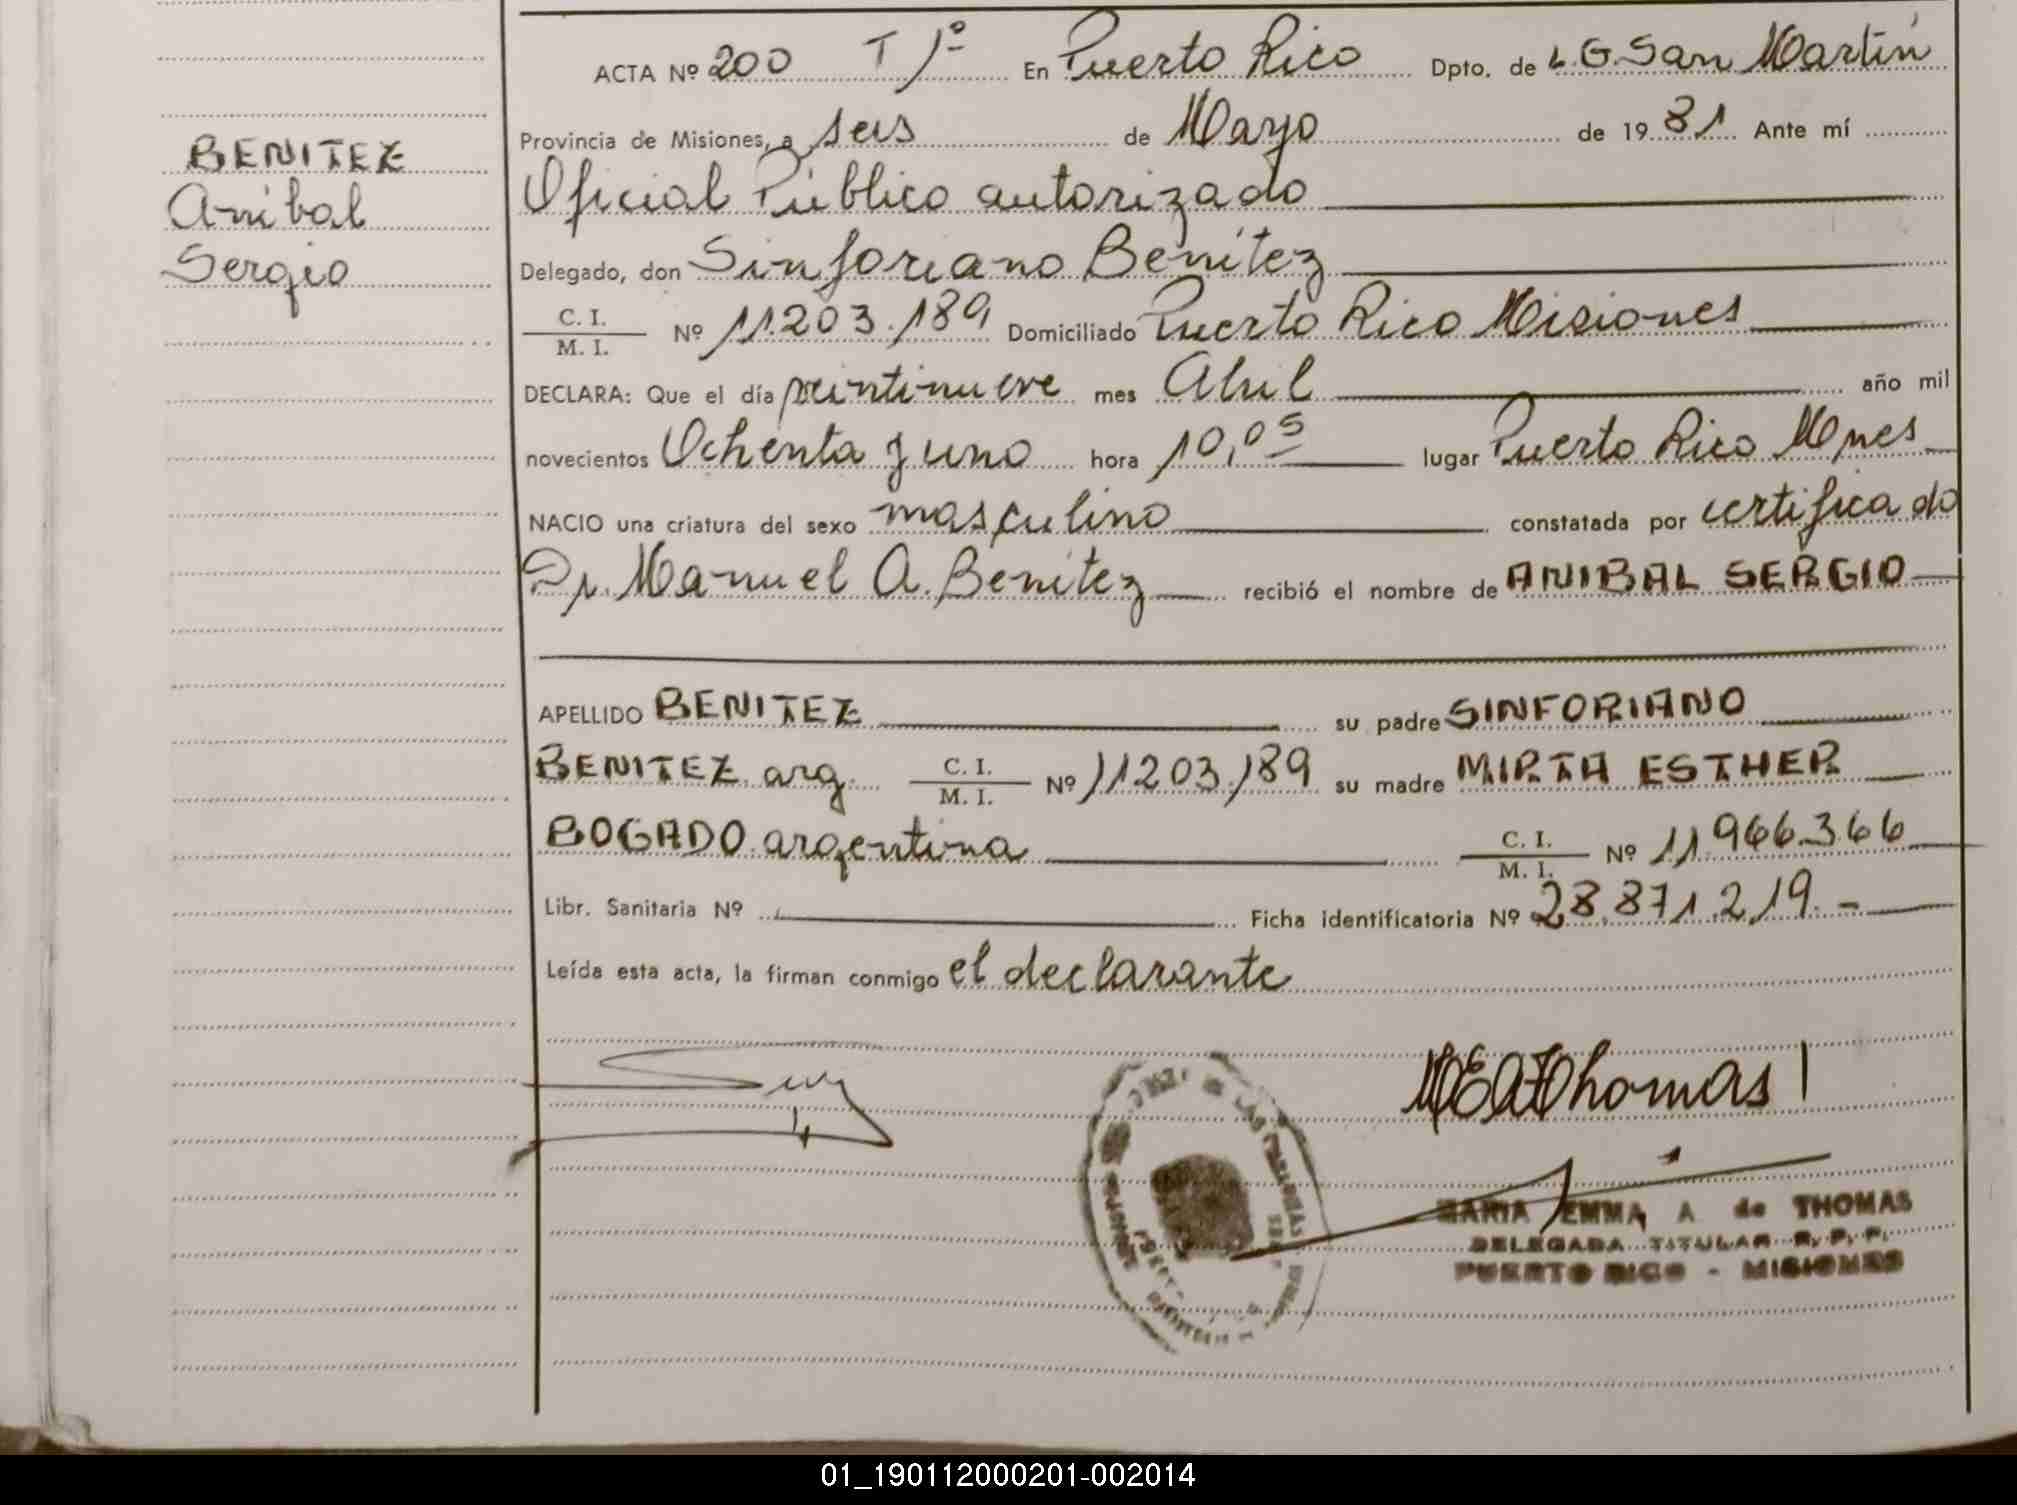 ACTA Nº 200 T 1º En Puerto Rico Dpto. de L.G.San Martín
BENITEZ
Anibal
Sergio
Provincia de Misiones, a seis de Mayo de 19 81 Ante mí
Oficial Público autorizado
Delegado, don Sinforiano Benítez
C. I.
M. I. Nº 11.203.189 Domiciliado Puerto Rico Misiones
DECLARA: Que el día veintinueve mes Abril año mil
novecientos Ochenta y uno hora 10,05 lugar Puerto Rico Mnes
NACIO una criatura del sexo masculino constatada por certificado
Dr. Manuel A. Benítez recibió el nombre de ANIBAL SERGIO
APELLIDO BENITEZ su padre SINFORIANO
BENITEZ arg. C. I.
M. I. Nº 11203.189 su madre MIRTA ESTHER
BOGADO argentina C. I.
M. I. Nº 11966.366
Libr. Sanitaria Nº Ficha identificatoria Nº 28.871.219.-
Leída esta acta, la firman conmigo el declarante
MEAThomas
MARIA EMMA A de THOMAS
DELEGADA TITULAR R. P. P.
PUERTO RICO - MISIONES
01_190112000201-002014